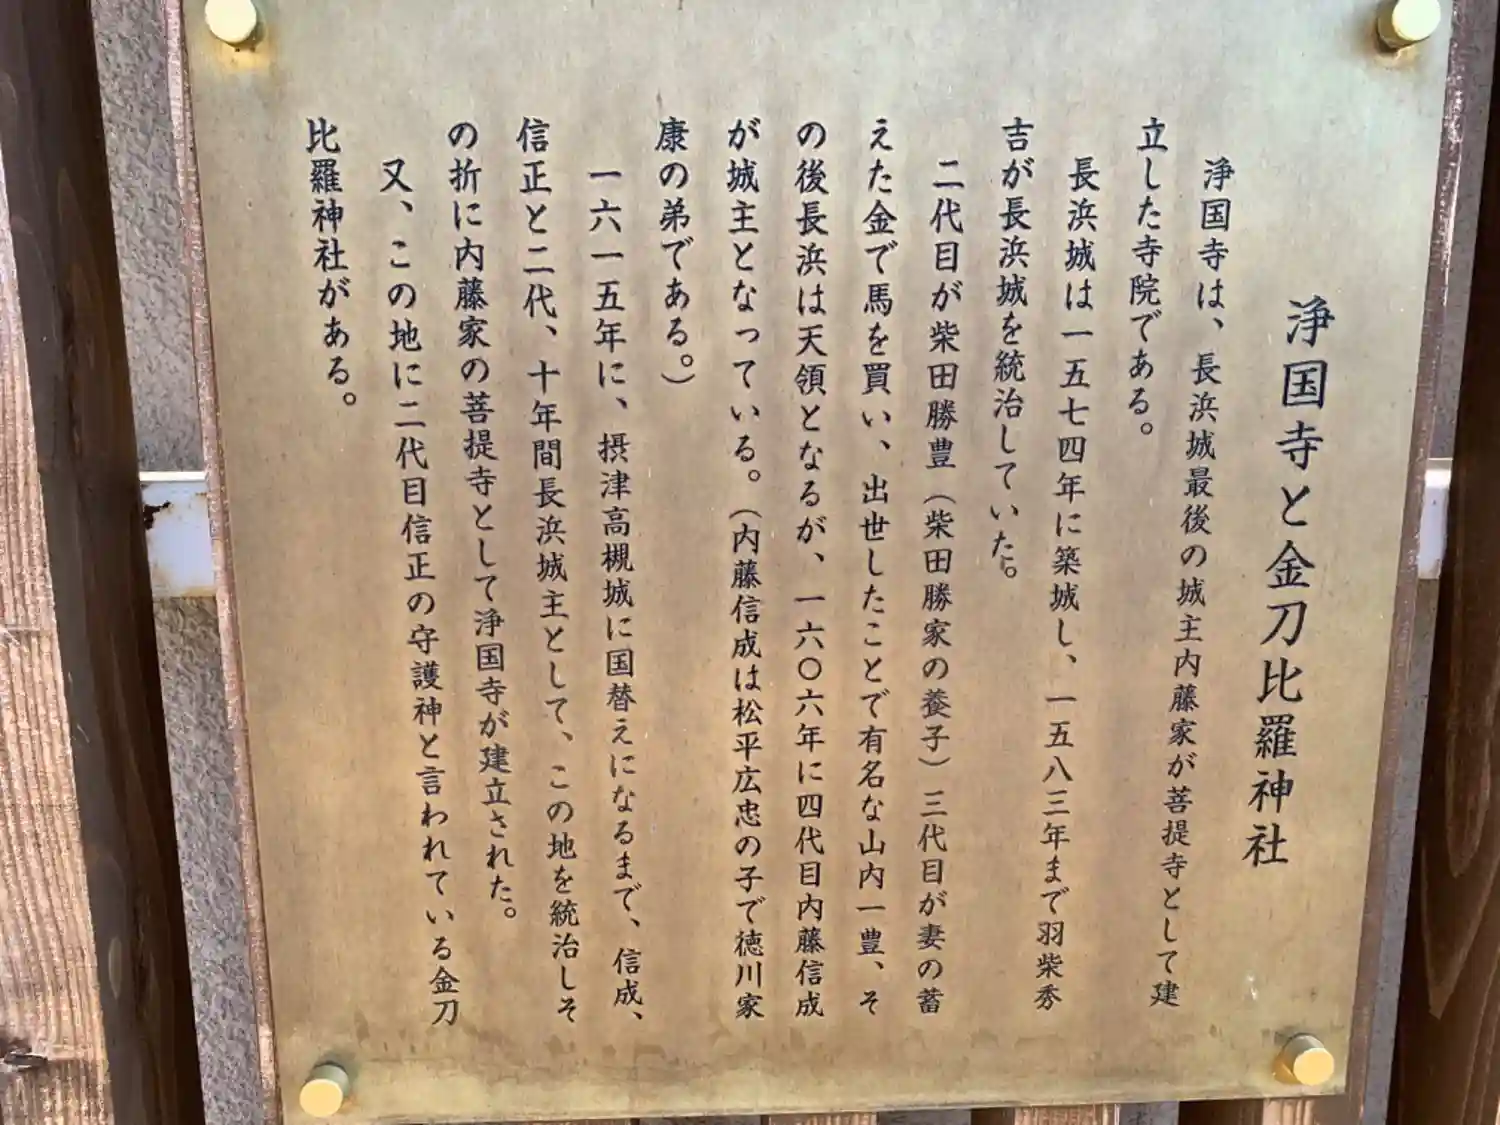 浄国寺と金刀比羅神社
浄国寺は、長浜城最後の城主内藤家が菩提寺として建
立した寺院である。
長浜城は一五七四年に築城し、一五八三年まで羽柴秀
吉が長浜城を統治していた。
二代目が柴田勝豊（柴田勝家の養子）三代目が妻の蓄
えた金で馬を買い、出世したことで有名な山内一豊、そ
の後長浜は天領となるが、一六〇六年に四代目内藤信成
が城主となっている。（内藤信成は松平広忠の子で徳川家
康の弟である。）
一六一五年に、摂津高槻城に国替えになるまで、信成、
信正と二代、十年間長浜城主として、この地を統治しそ
の折に内藤家の菩提寺として浄国寺が建立された。
又、この地に二代目信正の守護神と言われている金刀
比羅神社がある。